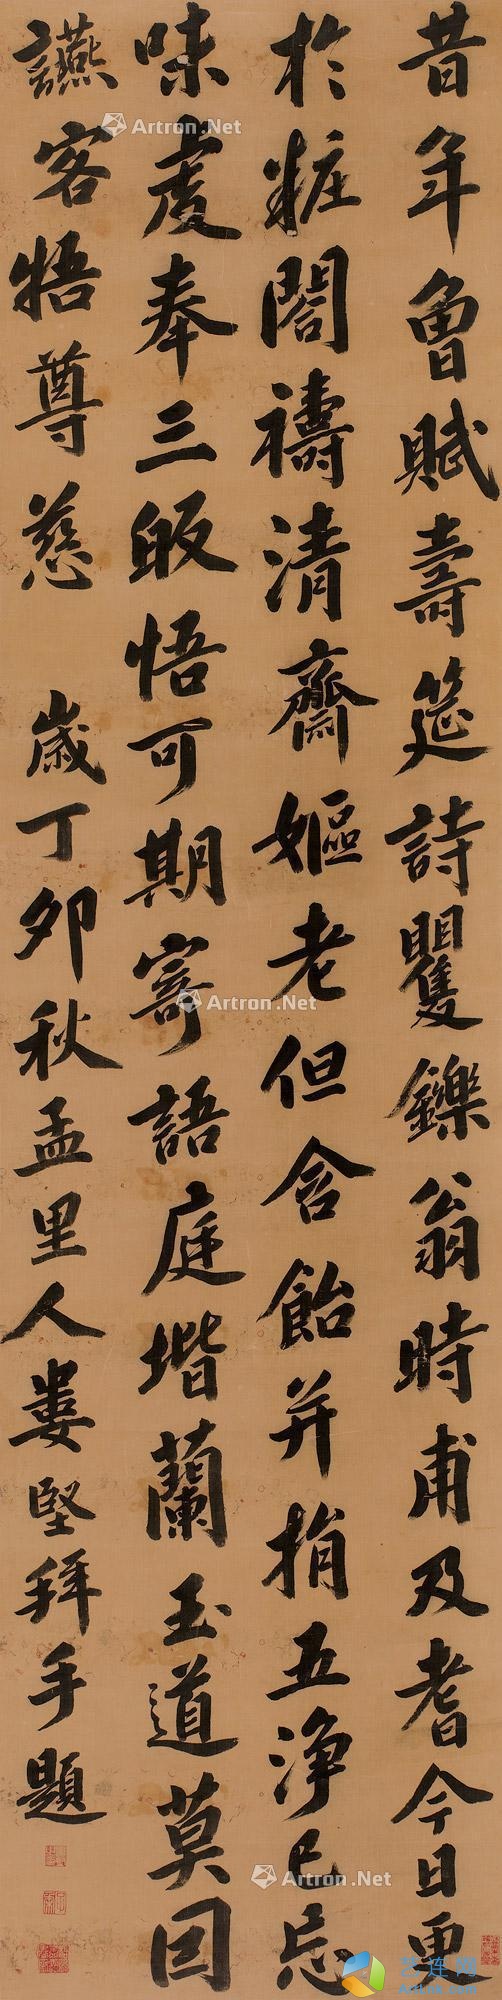 昔年曾賦壽筵詩矍鑠翁時甫及耆今日更
於粧閣禱清齋嫗老但含飴并捐五淨已忘
味虔奉三皈悟可期寄語庭堦蘭玉道莫因
讌客牾尊慈 歲丁卯秋孟里人婁堅拜手題
Artron.Net
Artron.Net
Artron.Net